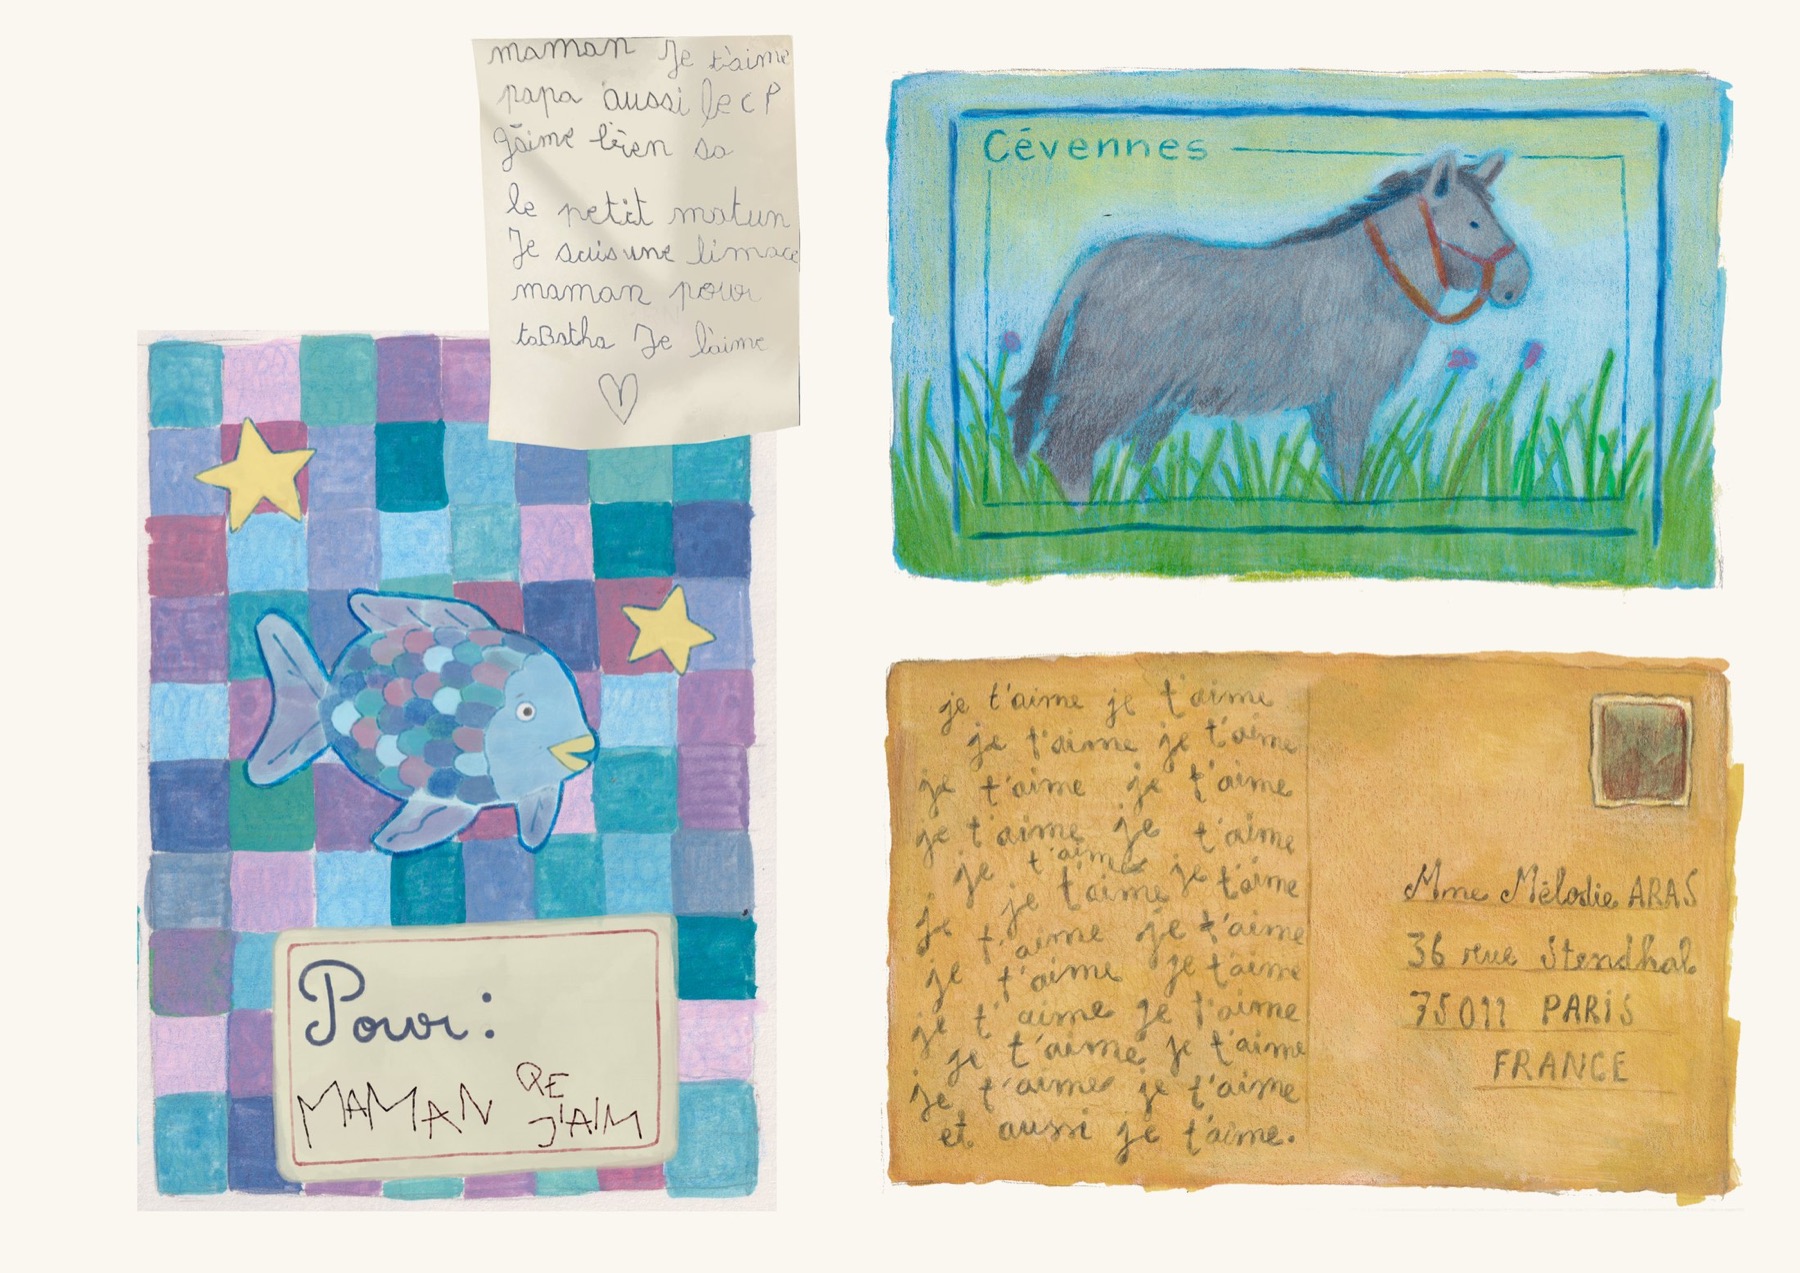 maman Je t'aime
papa aussi le CP
J'aime bien sa
le petit matun
Je suis une limace
maman pour
taBatha Je l'aime
Pour :
MAMAN QE
J'AIM
Cévennes
je t'aime je t'aime
je t'aime je t'aime
je t'aime je t'aime
je t'aime je t'aime
je t'aime je t'aime
je je t'aime
t'aime je t'aime
je t'aime je t'aime
je t'aime je t'aime
je t'aime je t'aime
je t'aime je t'aime
et aussi je t'aime.
Mme Mélodie ARAS
36 rue Stendhal
75011 PARIS
FRANCE